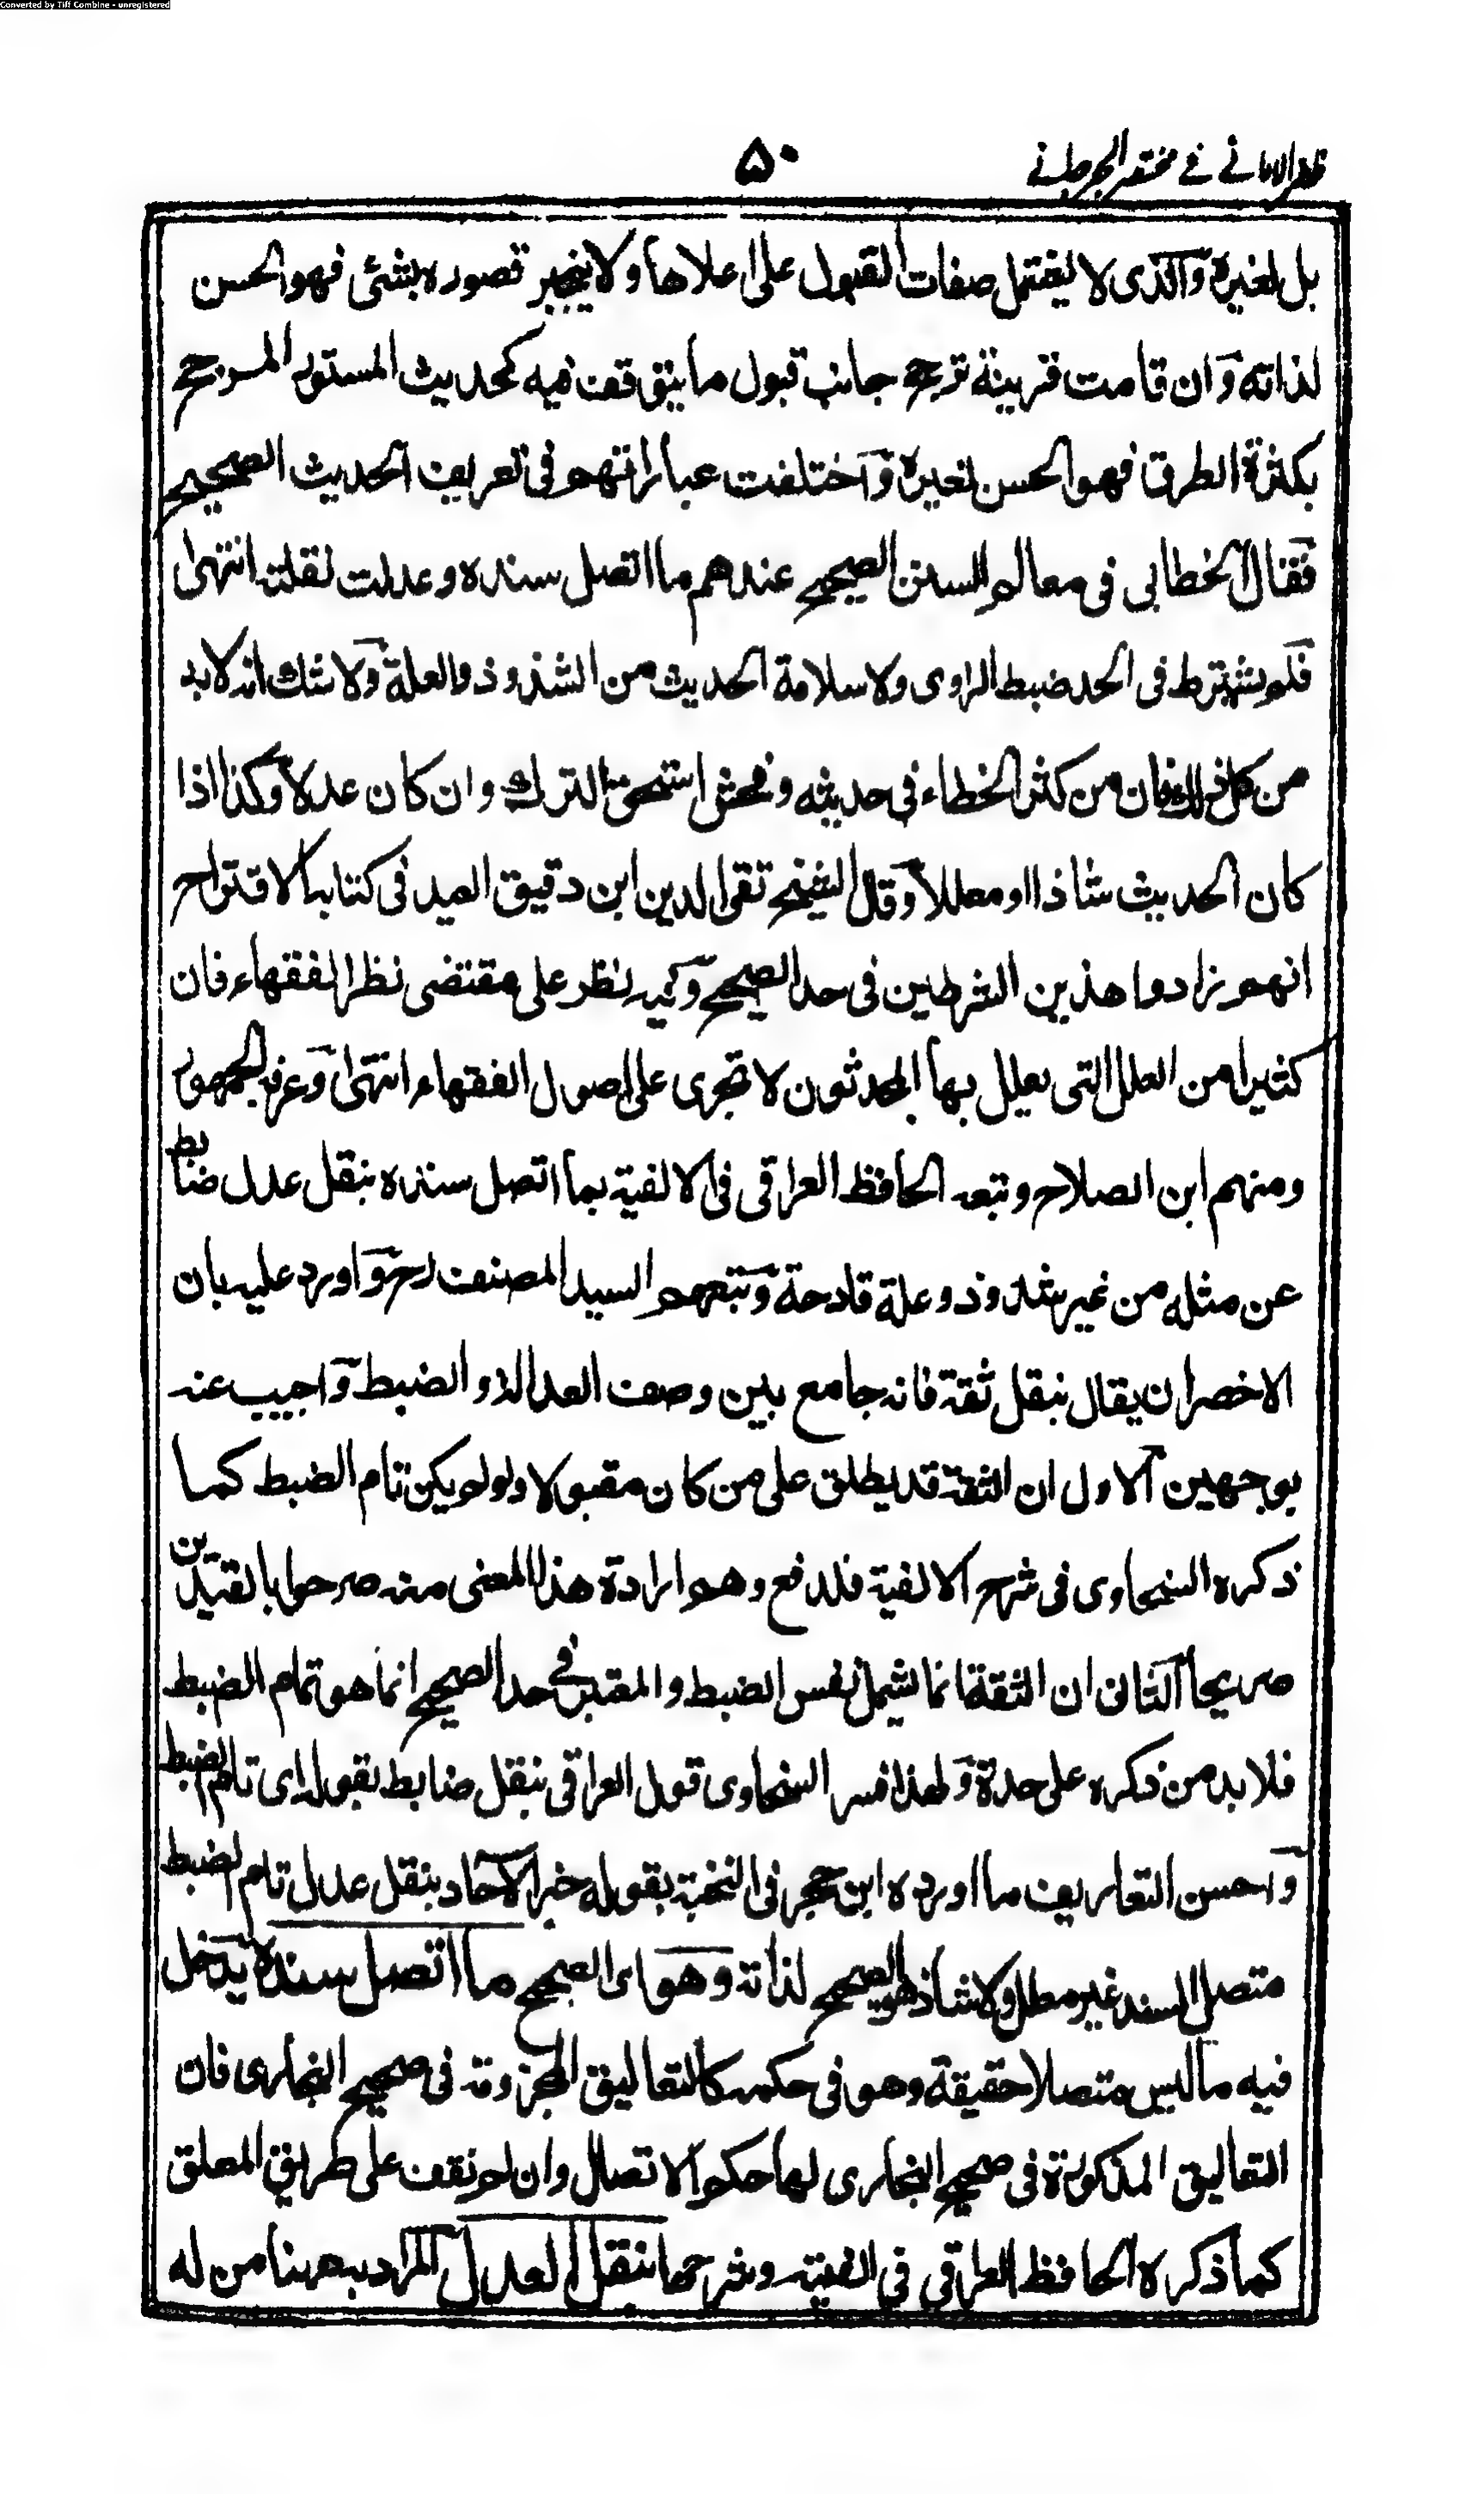 Converted by Tiff Combine - unregistered
ظفر الامانی فی مختصر الجرجانی
۵۰
بل لغيره والذى لا يشتمل صفات القبول على اعلاها ولا ينجبر قصوره بشئى فهو الحسن
لذاته وان قامت قرينة ترجح جانب قبول ما يتوقف فيه كحديث المستور المرجح
بكثرة الطرق فهو الحسن لغيره واختلفت عباراتهم فى تعريف الحديث الصحيح
فقال الخطابى فى معالم السنن الصحيح عندهم ما اتصل سنده وعدلت نقلته انتهى
فلم يشترط فى الحد ضبط الراوى ولا سلامة الحديث من الشذوذ والعلة ولا شك انه لا بد
من كل ذلك فان من كثر الخطاء فى حديثه وفحش استحق الترك وان كان عدلا وكذا اذا
كان الحديث شاذا او معللا وقال الشيخ تقى الدين ابن دقيق العيد فى كتابه الاقتراح
انهم زادوا هذين الشرطين فى حد الصحيح وفيه نظر على مقتضى نظر الفقهاء فان
كثيرا من العلل التى يعلل بها المحدثون لا تجرى على اصول الفقهاء انتهى وعرفه الجمهور
ومنهم ابن الصلاح وتبعه الحافظ العراقى فى الالفية بما اتصل سنده بنقل عدل ضابط
عن مثله من غير شذوذ وعلة قادحة وتبعهم السيد المصنف رح واورد عليه بان
الاخصر ان يقال بنقل ثقة فانه جامع بين وصف العدالة والضبط واجيب عنه
بوجهين الاول ان الثقة قد يطلق على من كان مقبولا ولو لم يكن تام الضبط كما
ذكره السخاوى فى شرح الالفية فلدفع وهم ارادة هذا المعنى منه صرحوا بالقيدين
صريحا الثانى ان الثقة انما يشمل نفس الضبط والمعتبر فى حد الصحيح انما هو تمام الضبط
فلا بد من ذكره على حدة ولهذا فسر السخاوى قول العراقى بنقل ضابط بقوله اى تام الضبط
واحسن التعاريف ما اورده ابن حجر فى النخبة بقوله خبر الآحاد بنقل عدل تام الضبط
متصل السند غير معلل ولا شاذ هو الصحيح لذاته وهو اى الصحيح ما اتصل سنده لا يدخل
فيه ما ليس متصلا حقيقة وهو فى حكمه كالتعاليق المجزومة فى صحيح البخارى فان
التعاليق المذكورة فى صحيح البخارى لها حكم الاتصال وان لم نقف على طريق المعلق
كما ذكره الحافظ العراقى فى الفيته وشرحها بنقل العدل المراد به ههنا من له